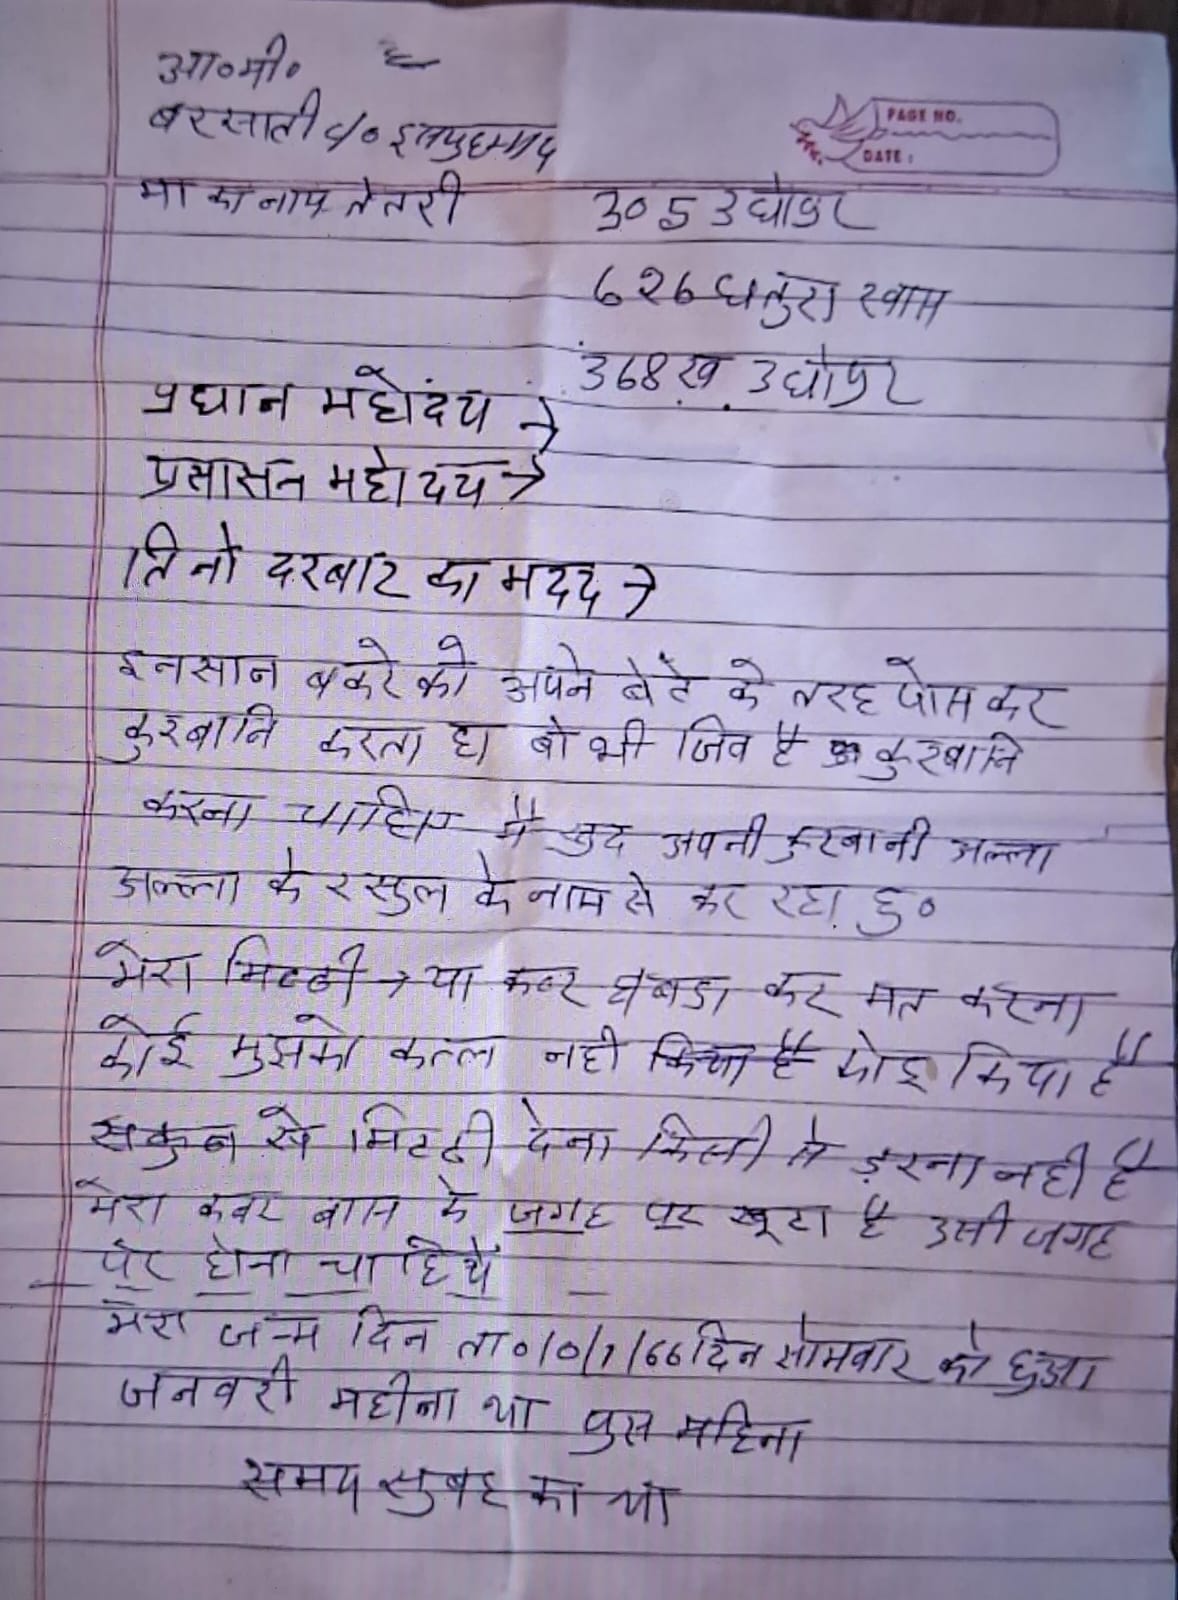 आ०मी०
बरसाती c/o
PAGE NO.
DATE :
मा का नाम तेतरी
305 उधोपुर
626 धतुरा खास
368 ख. उधोपुर
प्रधान महोदय →
प्रसासन महोदय →
तिनो दरबार का मदद →
इनसान बकरे को अपने बेटे के तरह पोस कर
कुरबानि करता है वो भी जिव है कुरबानि
करना चाहिए मै खुद अपनी कुरबानी अल्ला
अल्ला के रसुल के नाम से कर रहा हु०
मेरा मिटटी → या कबर घबडा कर मत करना
कोई मुझको कत्ल नही किया है
सकुन से मिटटी देना किसी से ड़रना नही है
मेरा कबर बास के जगह पर खूटा है उसी जगह
पर होना चाहिये
मेरा जन्म दिन ता० 10/1/66 दिन सोमवार को हुआ
जनवरी महीना था पुस महिना
समय सुबह का था